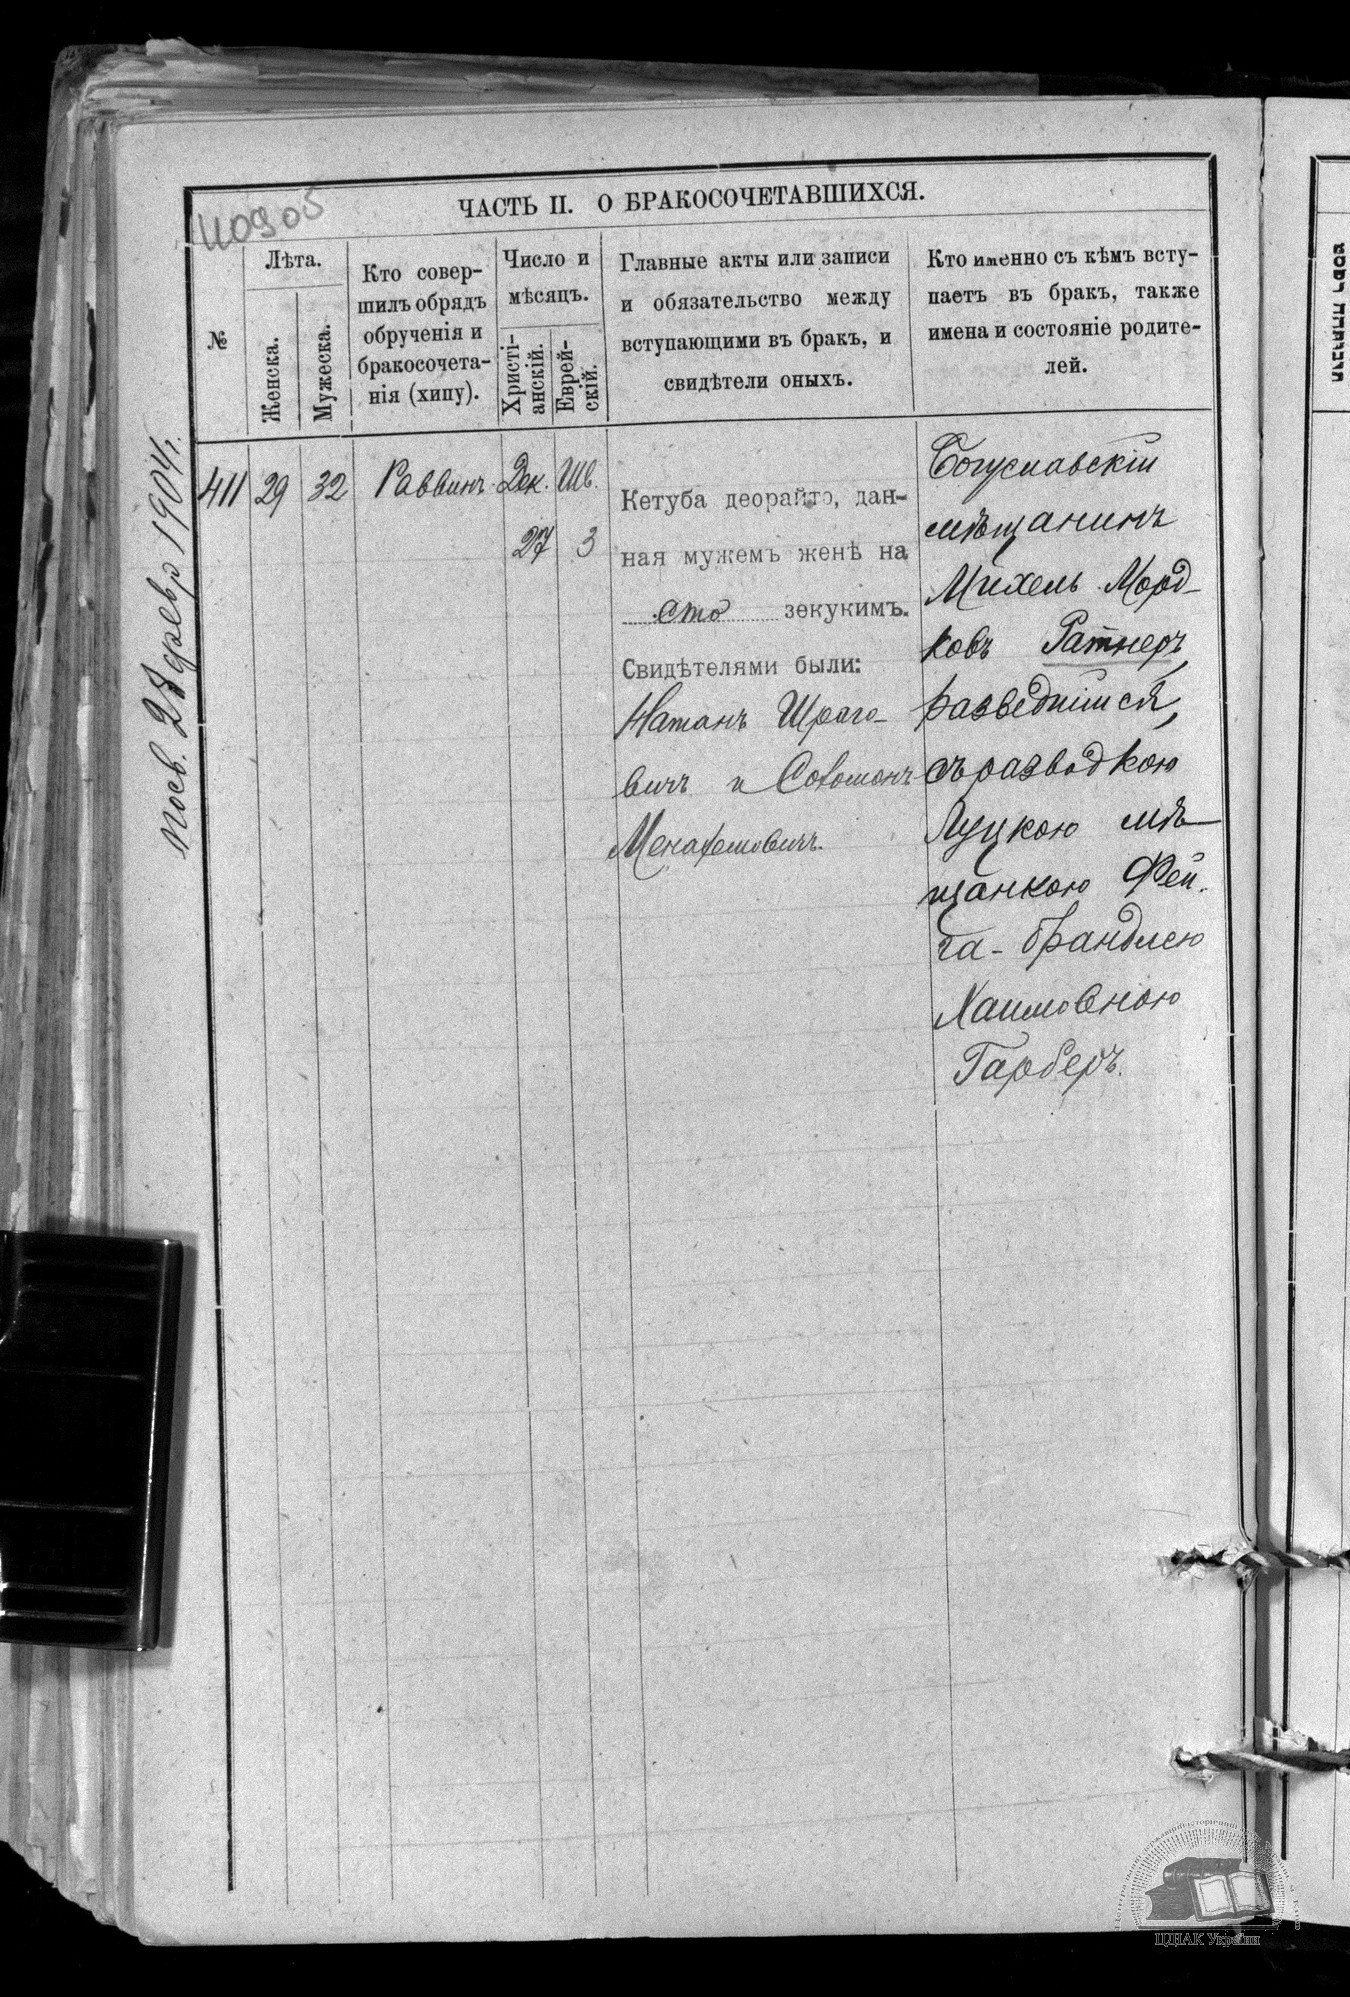 ЧАСТЬ II. О БРАКОСОЧЕТАВШИХСЯ.
№
Лѣта.
Женска.
Мужеска.
Кто совер-
шилъ обрядъ
обрученія и
бракосочета-
нія (хипу).
Число и
мѣсяцъ.
Христі-
анскій.
Еврей-
скій.
Главные акты или записи
и обязательство между
вступающими въ бракъ, и
свидѣтели оныхъ.
Кто именно съ кѣмъ всту-
паетъ въ бракъ, также
имена и состояніе родите-
лей.
411
29
32
Раввинъ
Дек.
27
Шв.
3
Кетуба деорайто, дан-
ная мужемъ женѣ на
сто зекукимъ.
Свидѣтелями были:
Натанъ Шраго-
вичъ и Соломонъ
Менахемовичъ.
Богуславскій
мѣщанинъ
Михель Морд-
ковъ Ратнеръ,
разведшійся,
съ разводкою
Луцкою мѣ-
щанкою Фей-
га-Брандлею
Хаимовною
Гарберъ.
февр 1904 г.
ЦДІАК України